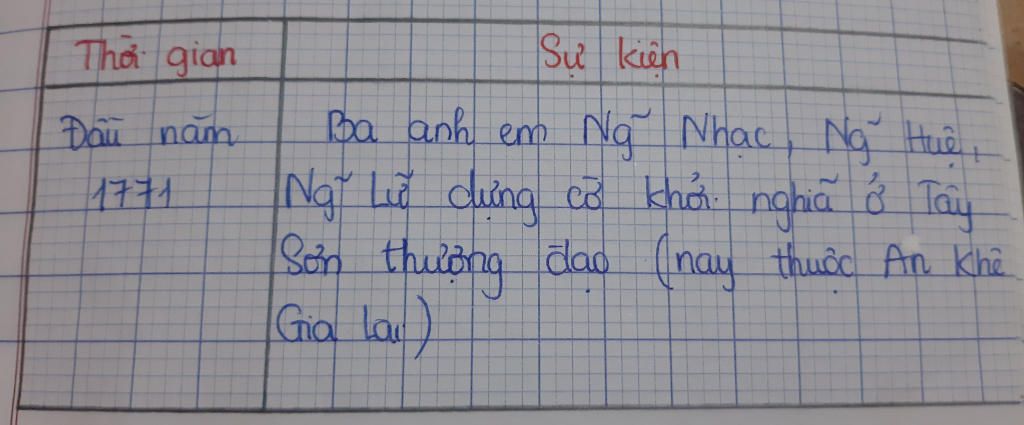 Thời gian Sự kiện
Đầu năm Ba anh em Ng~ Nhạc, Ng~ Huệ,
1771 Ng~ Lữ dựng cờ khởi nghĩa ở Tây
Sơn thượng đạo (nay thuộc An Khê
Gia Lai)